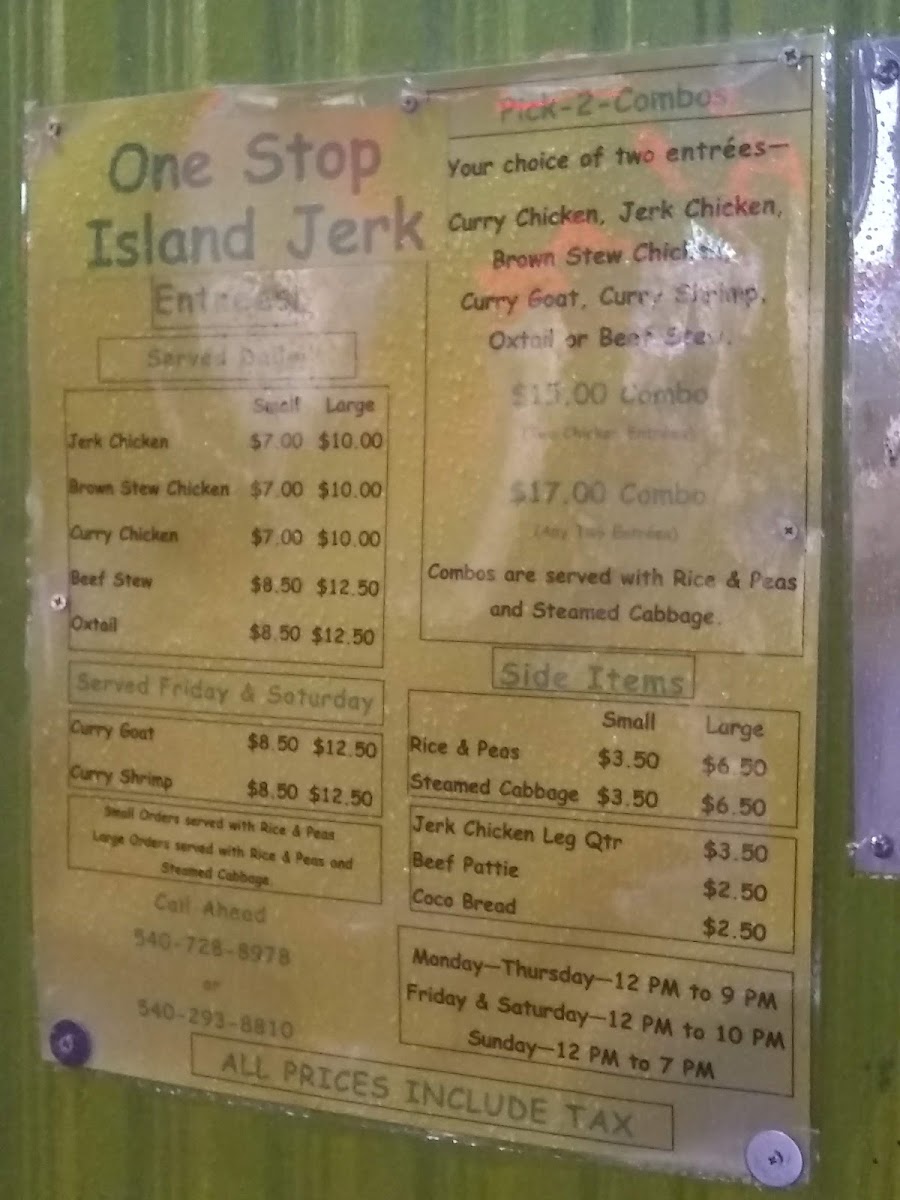 One Stop
Island Jerk
Entrées
Served Daily
Small Large
Jerk Chicken $7.00 $10.00
Brown Stew Chicken $7.00 $10.00
Curry Chicken $7.00 $10.00
Beef Stew $8.50 $12.50
Oxtail $8.50 $12.50
Served Friday & Saturday
Curry Goat $8.50 $12.50
Curry Shrimp $8.50 $12.50
Small Orders served with Rice & Peas
Large Orders served with Rice & Peas and
Steamed Cabbage
Call Ahead
540-728-8978
or
540-293-8810
Pick-2-Combos
Your choice of two entrées—
Curry Chicken, Jerk Chicken,
Brown Stew Chicken,
Curry Goat, Curry Shrimp,
Oxtail or Beef Stew.
$15.00 Combo
(Two Chicken Entrées)
$17.00 Combo
(Any Two Entrées)
Combos are served with Rice & Peas
and Steamed Cabbage.
Side Items
Small Large
Rice & Peas $3.50 $6.50
Steamed Cabbage $3.50 $6.50
Jerk Chicken Leg Qtr $3.50
Beef Pattie $2.50
Coco Bread $2.50
Monday—Thursday—12 PM to 9 PM
Friday & Saturday—12 PM to 10 PM
Sunday—12 PM to 7 PM
ALL PRICES INCLUDE TAX